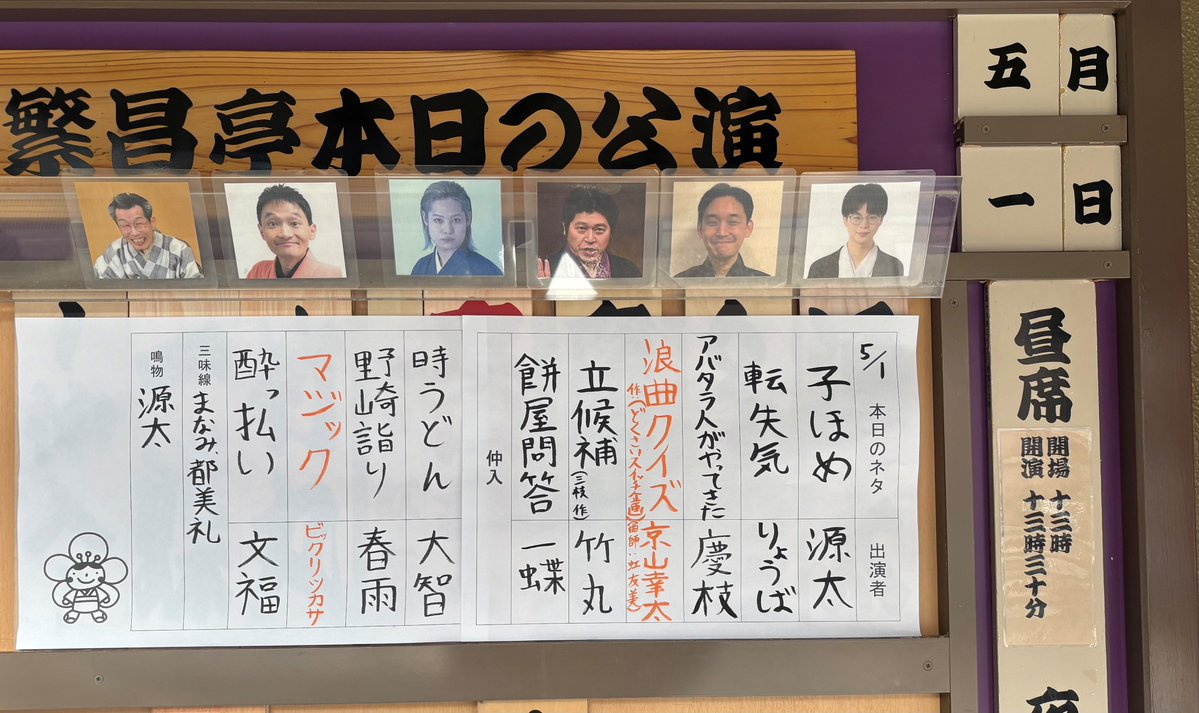 繁昌亭本日の公演
五月
一日
昼席
開場 十三時
開演 十三時三十分
5/1 本日のネタ 出演者
子ほめ 源太
転失気 りょうば
アバタラ人がやってきた 慶枝
浪曲クイズ 京山幸太
作:(どくさいスイッチ企画) (曲師:虹友美)
立候補(三枝 作) 竹丸
餅屋問答 一蝶
仲入
時うどん 大智
野崎詣り 春雨
マジック ビックリツカサ
酔っ払い 文福
三味線 まなみ、都美礼
鳴物 源太